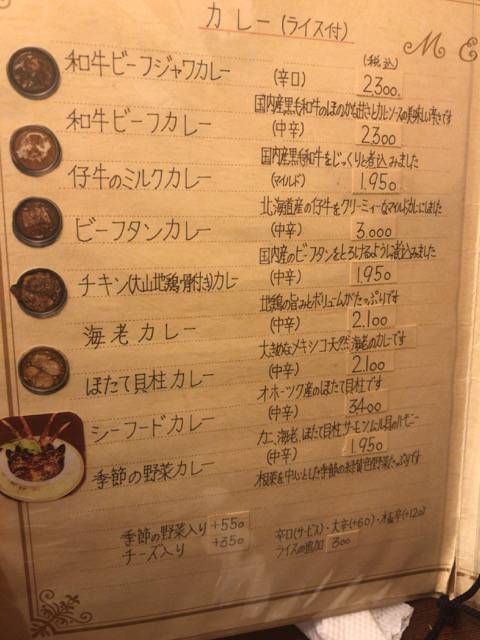 カレー(ライス付)
M E
(税込)
和牛ビーフジャワカレー (辛口) 2300.
国内産黒毛和牛のほのかな甘さとカレーソースの美味しい辛さです
和牛ビーフカレー (中辛) 2300
国内産黒毛和牛をじっくりと煮込みました
仔牛のミルクカレー (マイルド) 1.950
北海道産の仔牛をクリーミィーなマイルドカレーにしました
ビーフタンカレー (中辛) 3.000
国内産のビーフタンをとろけるように煮込みました
チキン(大山地鶏・骨付き)カレー (中辛) 1.950
地鶏の旨みとボリュームがたっぷりです
海老カレー (中辛) 2.100
大きめなメキシコ天然海老のカレーです
ほたて貝柱カレー (中辛) 2.100
オホーツク産のほたて貝柱です
シーフードカレー (中辛) 3400
カニ、海老、ほたて貝柱、サーモン、ムール貝のハーモニー
季節の野菜カレー (中辛) 1.950
根菜を中心とした季節の緑黄色野菜たっぷりです
季節の野菜入り +550
チーズ入り +350
辛口(サービス)・大辛(+60)・極辛(+120)
ライスの追加 300